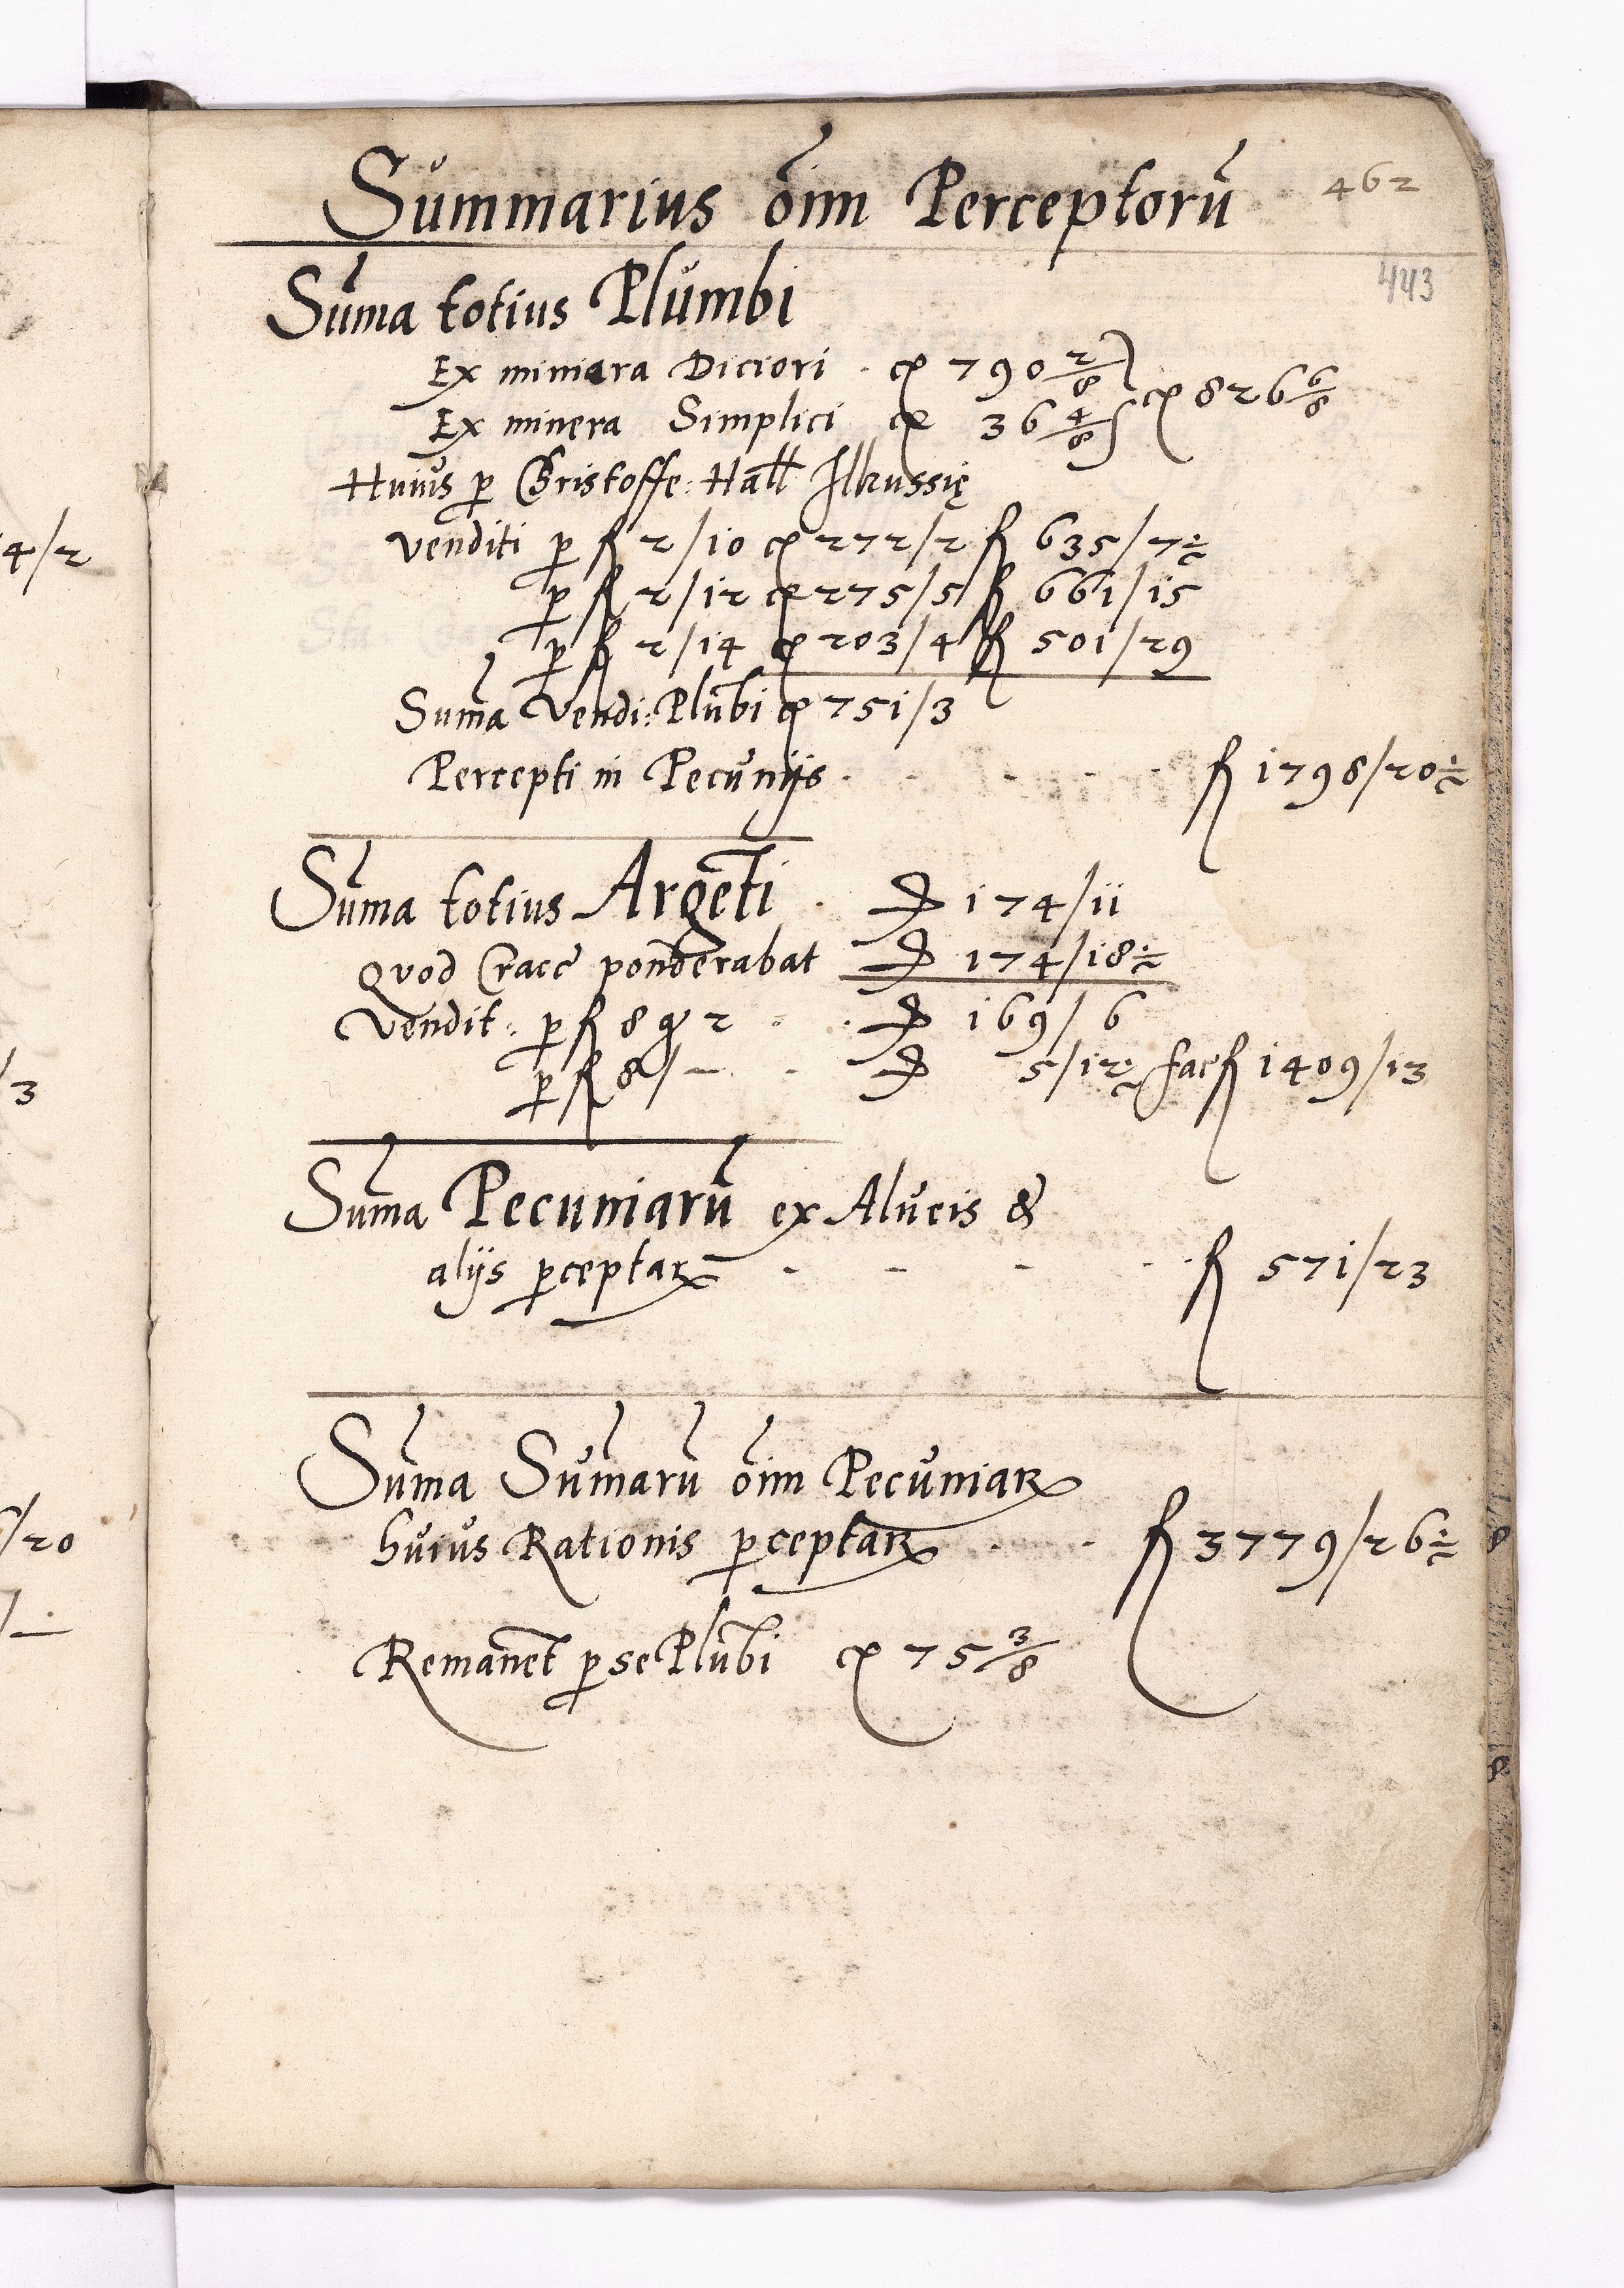 Summarius oīm Perceptorū 462
443
Sūma totius Plumbi
Ex miniara Diciori cɳ 790 2/8
Ex minera Simplici cɳ 36 4/8 cɳ 826 6/8
Huius p Cristoffe: Hall Ilkussię
venditi p fl 2/10 cɳ 272/2 fl 635/7 ÷
p fl 2/12 cɳ 275/5 fl 661/15
p fl 2/14 cɳ 203/4 fl 501/29
Sūma Vendi: Plūbi cɳ 751/3
Percepti in Pecunijs fl 1798/20 ÷
Sūma totius Argēti 174/11
Quod Cracē ponderabat 174/18 ÷
Vendit: p fl 8 gr 2 169/6
p fl 8/– 5/12 ÷ fac fl 1409/13
Sūma Pecuniarū ex Alueis &
alijs pceptaꝝ fl 571/23
Sūma Sūmarū oīm Pecuniaꝝ
huius Rationis pceptaꝝ fl 3779/26 ÷
Remanēt p se Plūbi cɳ 75 3/8
4/2
/3
/20
/–